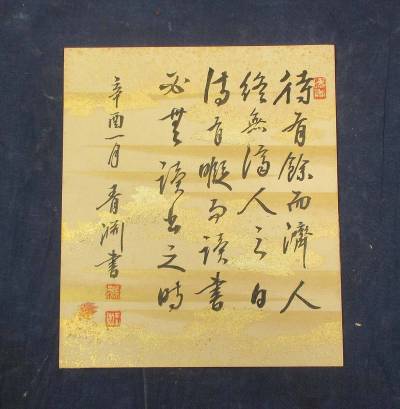 待有餘而濟人
終無濟人之日
待有暇而讀書
必無讀書之時
辛酉一月 青淵書